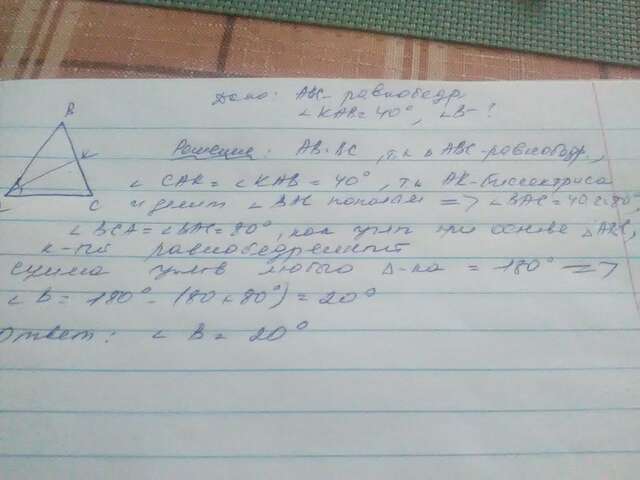 Дано: ABC - равнобедр.
∠KAB = 40°, ∠B - ?
B
K
C
Решение: AB=BC, т.к. Δ ABC - равнобедр.,
∠ CAK = ∠ KAB = 40°, т.к. AK - биссектриса
и делит ∠ BAC пополам => ∠ BAC = 40·2=80°
∠ BCA = ∠ BAC = 80°, как углы при основ Δ ABC,
к-рый равнобедренный
Сумма углов любого Δ-ка = 180° =>
∠ B = 180° - (80+80°) = 20°
Ответ: ∠ B = 20°